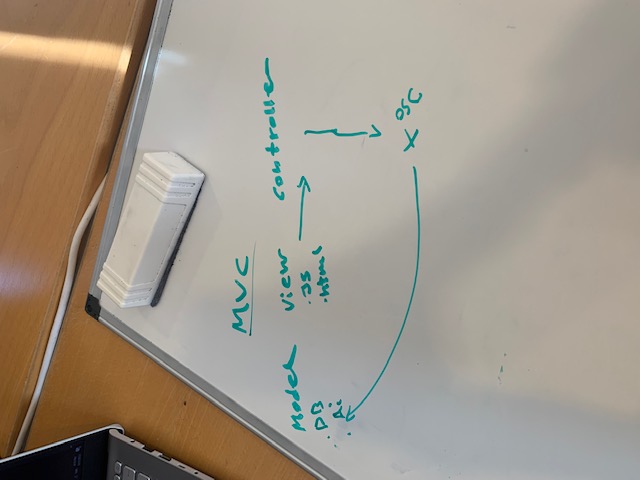 MVC
Model
.DB
.Ai
View
.JS
.html
Controller
X OSC